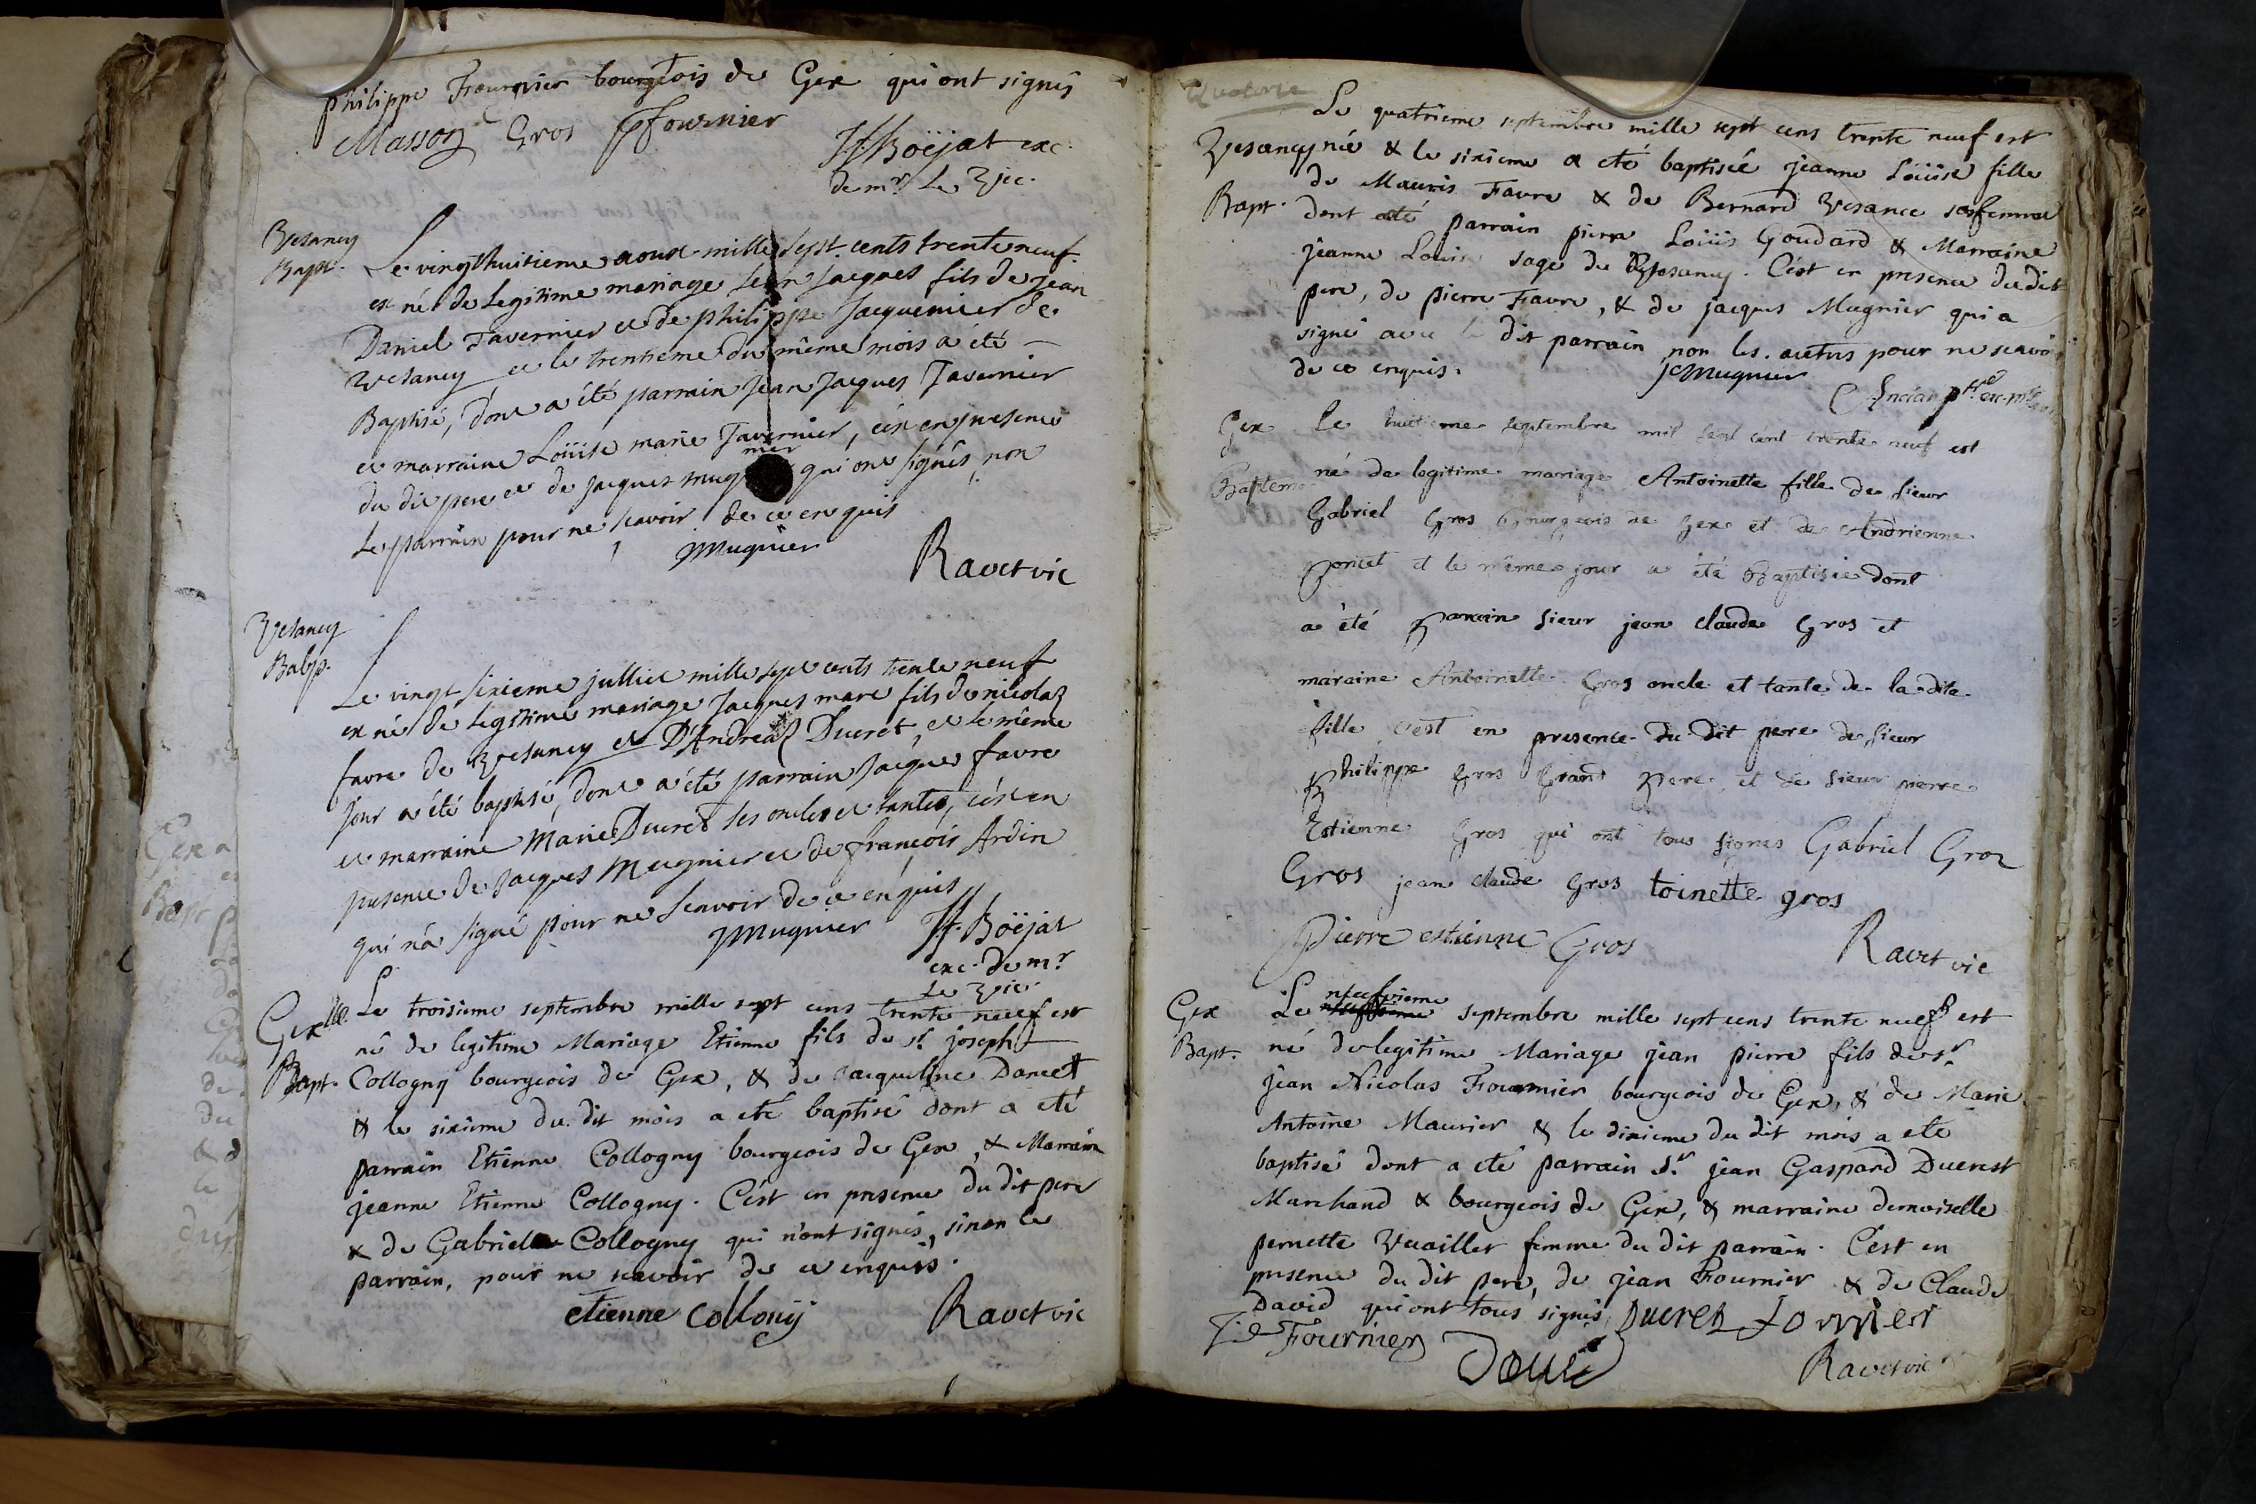 philippe Fournier bourgeois de Gex qui ont signés
Masson Gros PFournier
JfBoëjat exc.
de mr. Le Vic.
Vesancy
Bapt.
Le vingthuitieme aoust mille sept. cents trente neuf
est né de legitime mariage jean jacques fils de jean
Daniel Tavernier et de philippe jacquemier de
Vesancy et le trentieme du même mois a été
Baptisé, dont a été parrain jean jacques Tavernier
et marraine Loüise marie Tavernier, c'est en presence
du dit pere et de jacques mugnier qui ont signés non
le parrain pour ne scavoir de ce enquis
jmugnier
Ravet vic
Vesancy
Babp.
Le vingt sixieme julliet mille sept cents trente neuf
est né de legitime mariage jacques marc fils de nicolaz
favre de Vesancy et D'Andreaz Ducret, et le même
jour a été baptisé, dont a été parrain jacque favre
et marraine Marie Ducret ses oncle et tante, c'est en
presence de jacques Mugnier et de françois Ardin
qui n'a signé pour ne scavoir de ce enquis
jmugnier Jf. Boëjat
exc. de mr.
Le Vic.
Gex
Bapt.
Le troisieme septembre mille sept cens trente neuf est
né de legitime Mariage Etienne fils de sr. joseph
Collogny bourgeois de Gex, & de jacqueline Dancet
& le sixieme du dit mois a eté baptisé dont a eté
parrain Etienne Collogny bourgeois de Gex, & Marraine
jeanne Etienne Collogny. C'est en presence du dit pere
& de Gabriel Collogny qui n'ont signés, sinon le
parrain, pour ne scavoir de ce enquis.
etienne Collony Ravet vic
Quatorze
Vesancy
Bapt.
Le quatrieme septembre mille sept cens trente neuf est
née & le sixieme a eté baptisée jeanne Loüise fille
de Mauris Favre & de Bernard Vesance sa femme
dont a eté parrain pierre Loüis Goudard & Marraine
jeanne Louise sage de Vesancy. C'est en presence du dit
pere, de pierre Favre, & de jacques Mugnier qui a
signé avec le dit parrain non les autres pour ne scavoir
de ce enquis.
jcmugnier
Gex
Baptem
Le huitieme septembre mil sept cent trente neuf est
né de legitime mariage Antoinette fille de sieur
Gabriel Gros Bourgeois de gex et de Andrienne
poncet et le même jour a été Baptisée dont
a été parain sieur jean claude Gros et
maraine Antoinette Gros oncle et tante de la dite
fille c'est en presence du dit pere de sieur
philippe Gros Grand pere, et de sieur pierre
Estienne Gros qui ont tous signes Gabriel Gros
Gros jean claude Gros toinette gros
Pierre estienne Gros Ravet vic
Gex
Bapt.
Le neufvieme septembre mille sept cens trente neuf est
né de legitime Mariage jean pierre fils de sr.
jean Nicolas Fournier bourgeois de Gex, & de Marie
Antoine Maurier & le dixieme du dit mois a eté
baptisé dont a eté parrain sr. jean Gaspard Ducrest
Marchand & bourgeois de Gex, & marraine demoiselle
pernette Vuaillet femme du dit parrain. C'est en
presence du dit pere, de jean Fournier & de Claude
David qui ont tous signés, Ducrest fornier
Fournier David
Ravet vic